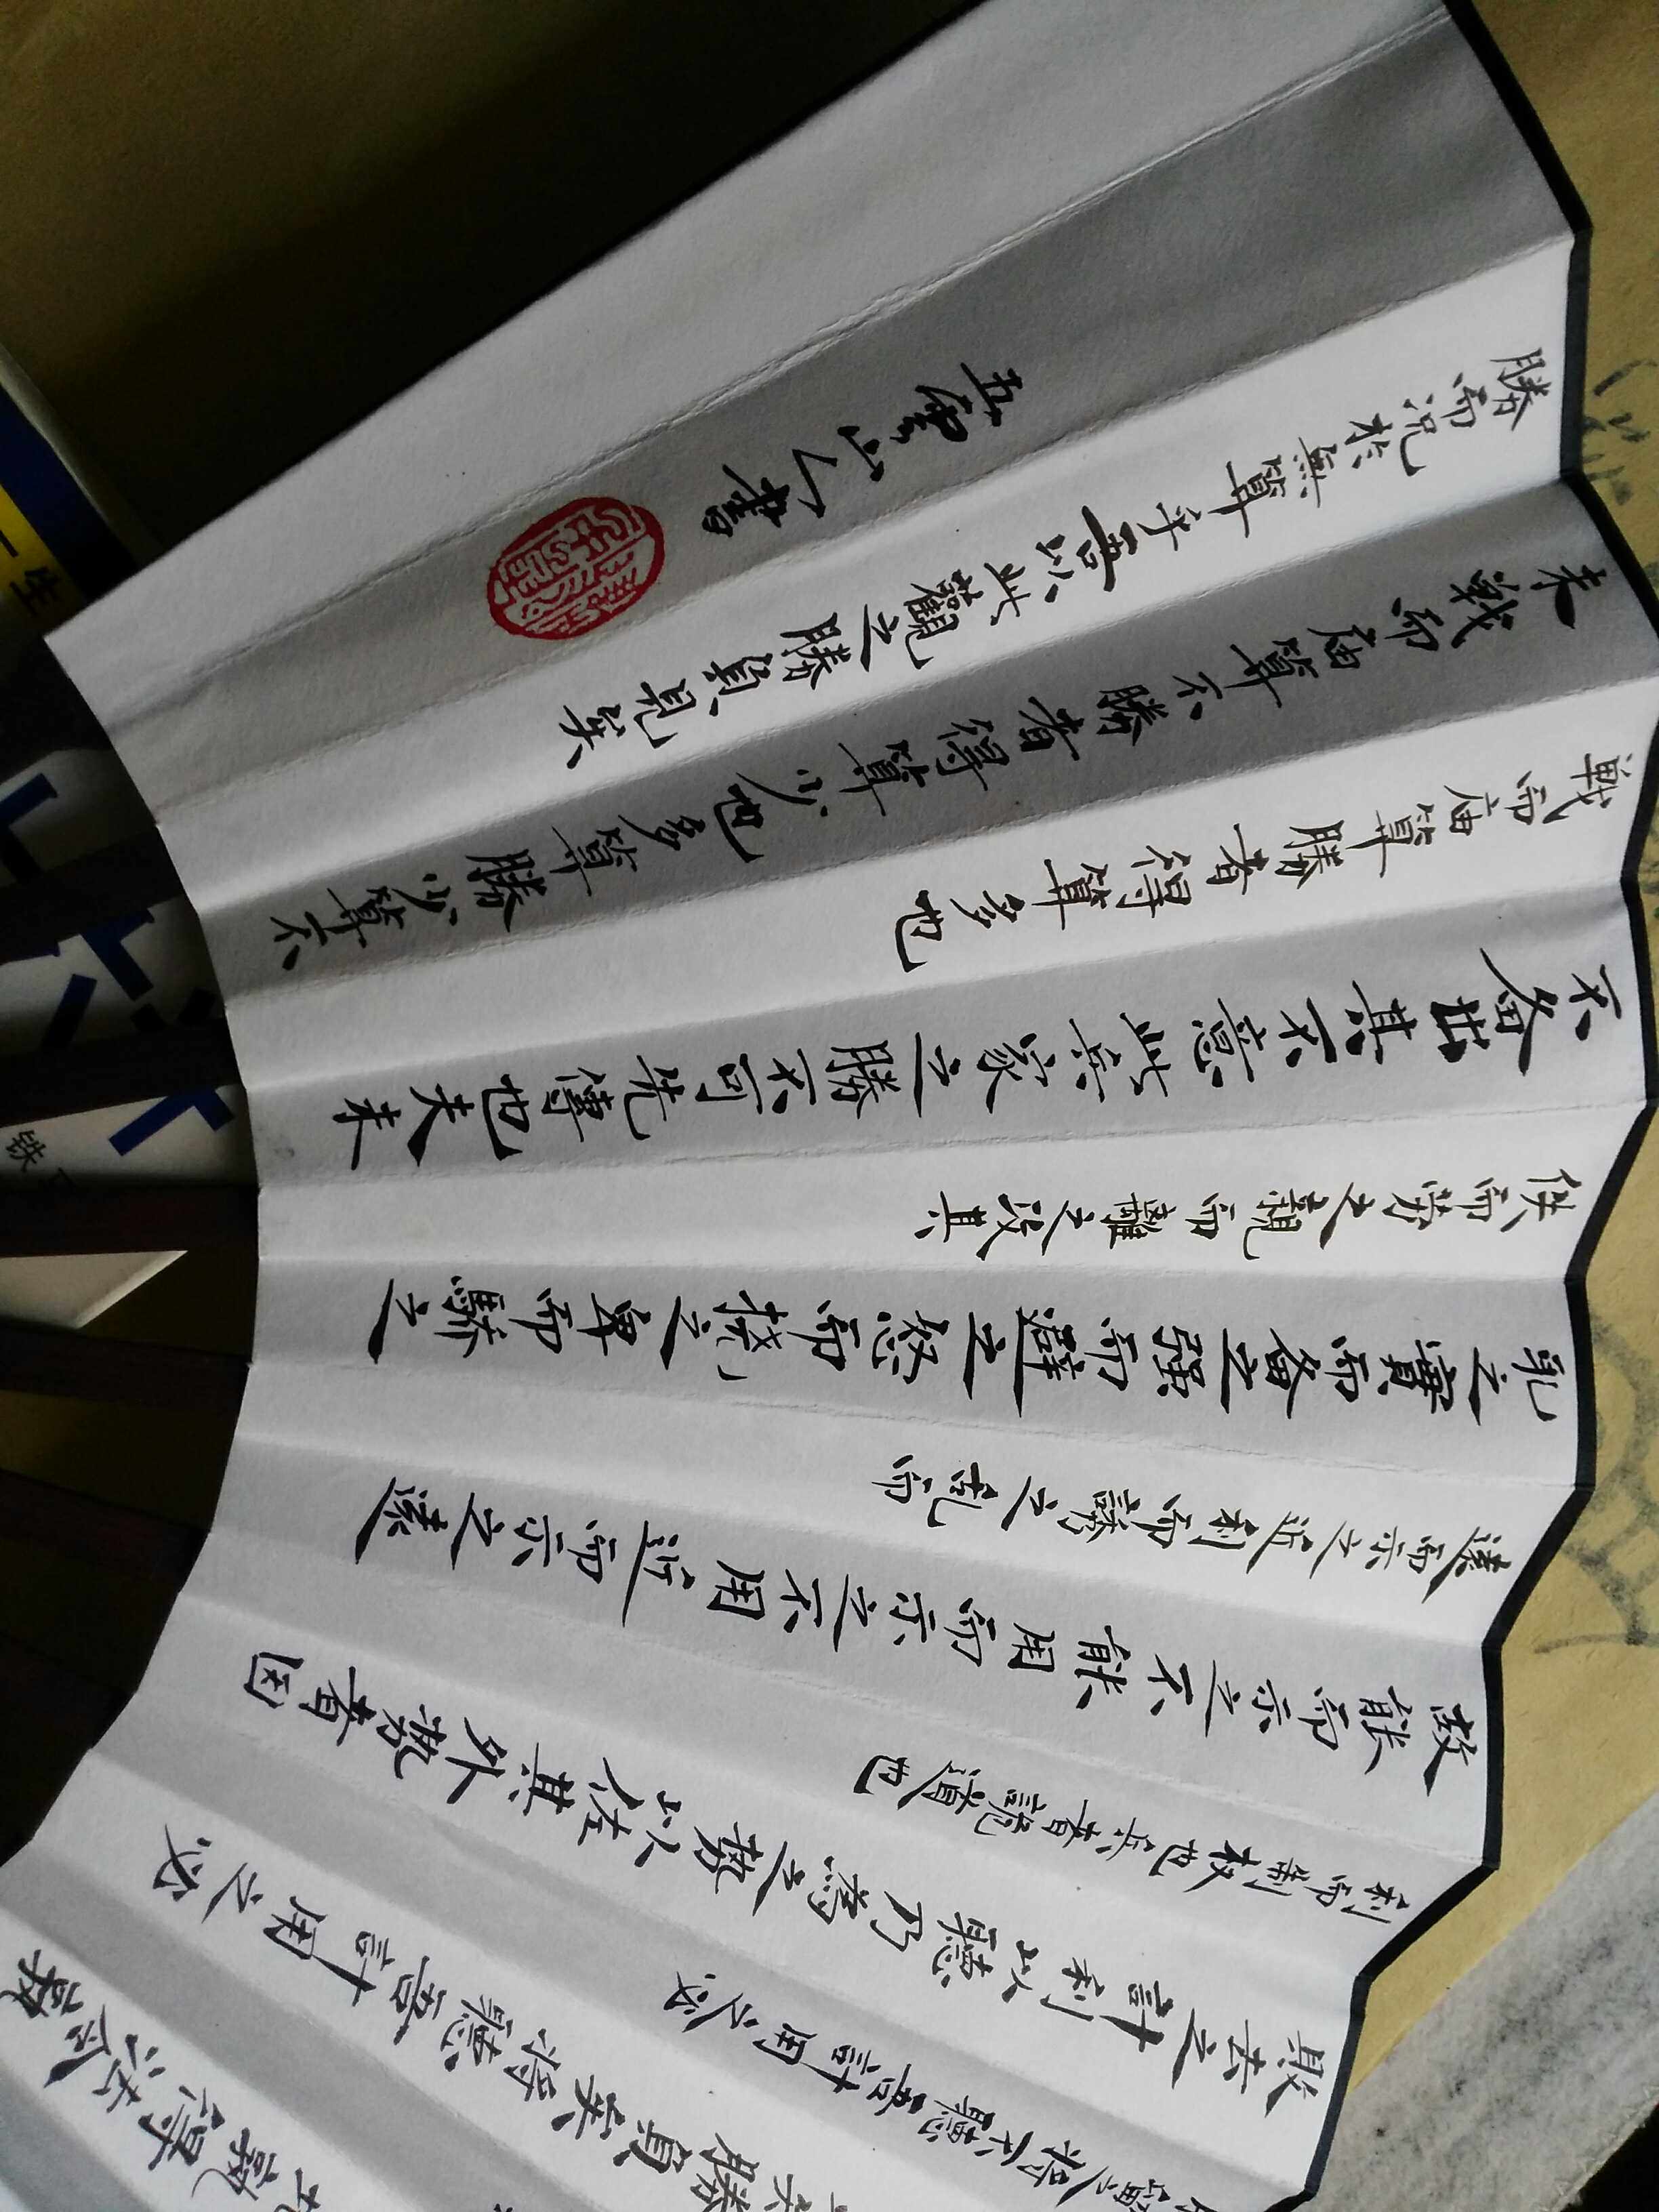 孰得法令孰
勝負矣將聽吾計用之必
留之將不聽吾計用之必
敗去之計利以聽乃為之勢以佐其外勢者因
利而制权也兵者詭道也
故能而示之不能用而示之不用近而示之遠
遠而示之近利而誘之乱而
乱之實而备之强而避之怒而撓之卑而驕之
佚而劳之親而離之攻其
不备出其不意此兵家之勝不可先傳也夫未
戰而庙算勝者得算多也
未戰而庙算不勝者得算少也多算勝少算不
勝而況於無算乎吾以此觀之勝負見矣
五雲山人書
一生
铁